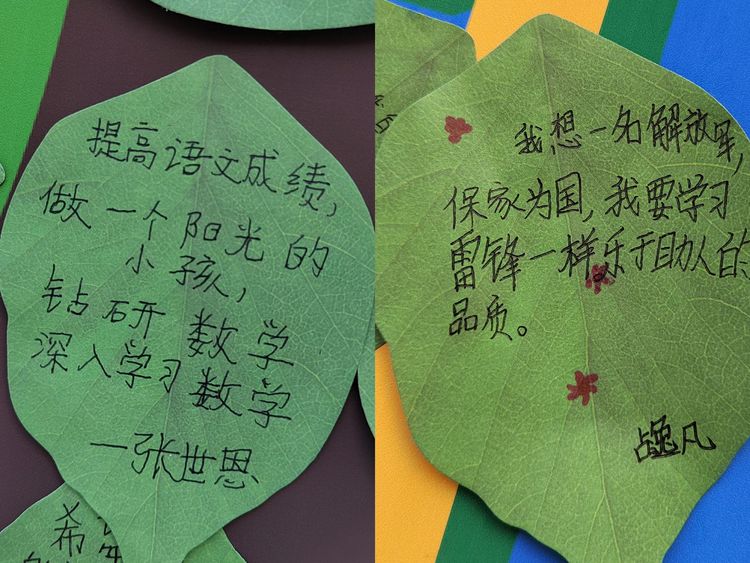 提高语文成绩,
做一个阳光的
小孩,
钻研数学
深入学习数学
一张世恩
希
我想一名解放军,
保家为国,我要学习
雷锋一样乐于助人的
品质。
逸凡